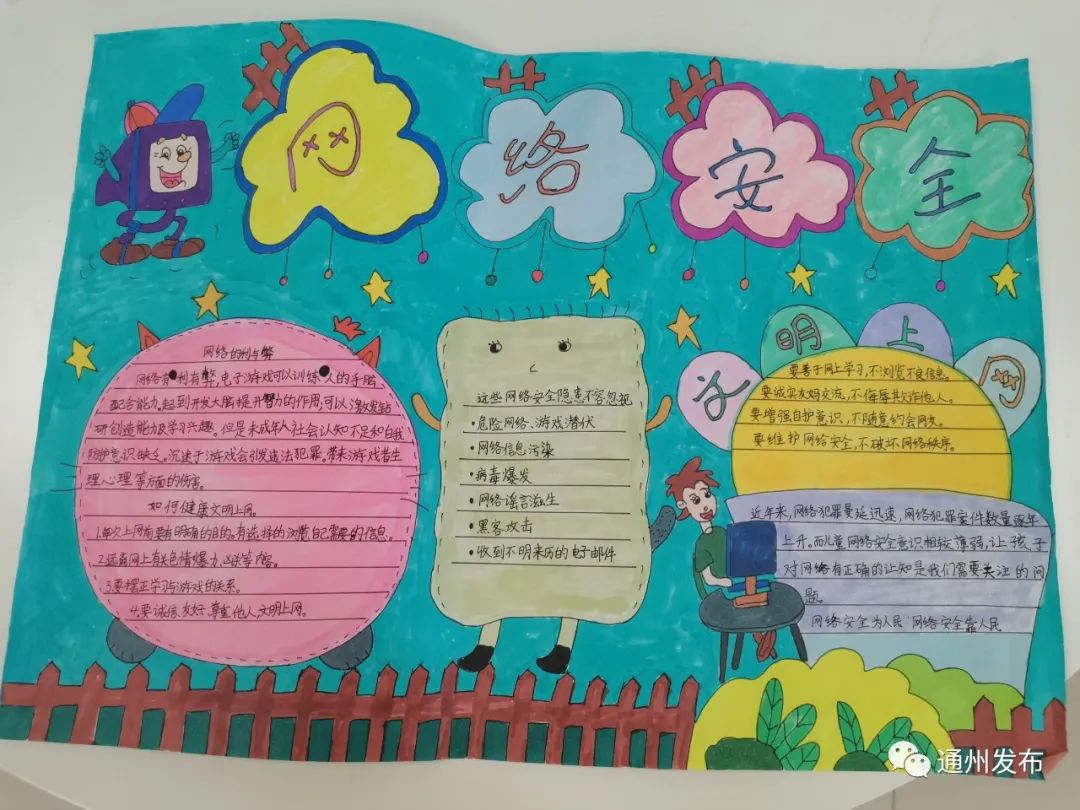 网络安全
网络的利与弊
网络有利有弊,电子游戏可以训练人的手脑
配合能力,起到开发大脑提升智力的作用,可以激发钻
研创造能力及学习兴趣。但是未成年人社会认知不足和自我
防护意识缺乏。沉迷于游戏会引发违法犯罪。带来游戏者生
理心理等方面的伤害。
如何健康文明上网。
1.每次上网前要有明确的目的。有选择的浏览自己需要的信息。
2.远离网上有关色情爆力、凶杀等内容。
3.要摆正学习与游戏的关系。
4.要诚信、友好、尊重他人,文明上网。
这些网络安全隐患不容忽视
•危险网络、游戏潜伏
•网络信息污染
•病毒爆发
•网络谣言滋生
•黑客攻击
•收到不明来历的电子邮件
文明上网
要善于网上学习,不浏览不良信息。
要诚实友好交流,不侮辱欺诈他人。
要增强自护意识,不随意约会网友。
要维护网络安全,不破坏网络秩序。
近年来,网络犯罪蔓延迅速,网络犯罪案件数量逐年
上升。而儿童网络安全意识相较薄弱,让孩子
对网络有正确的认知是我们需要关注的问
题。
网络安全为人民 网络安全靠人民
通州发布